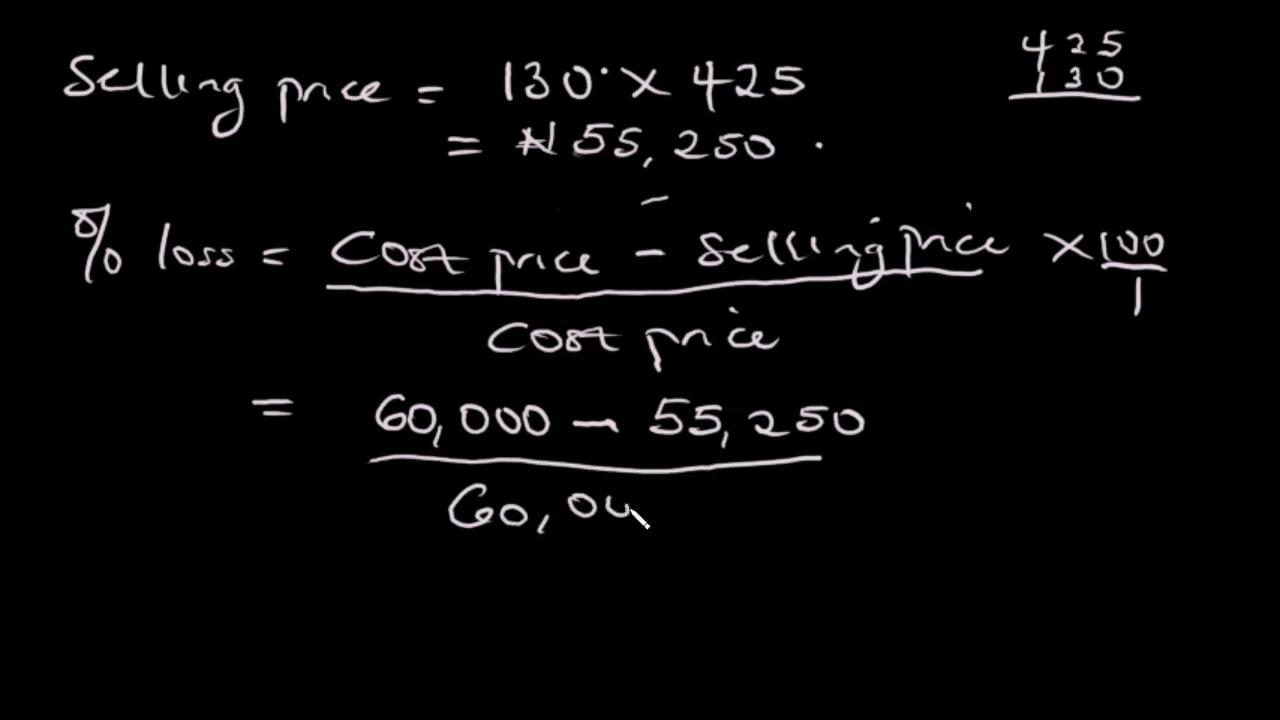 Selling price = 130 × 425
425
130
= ₦55,250.
% loss = Cost price - Selling price × 100
Cost price 1
= 60,000 - 55,250
60,00